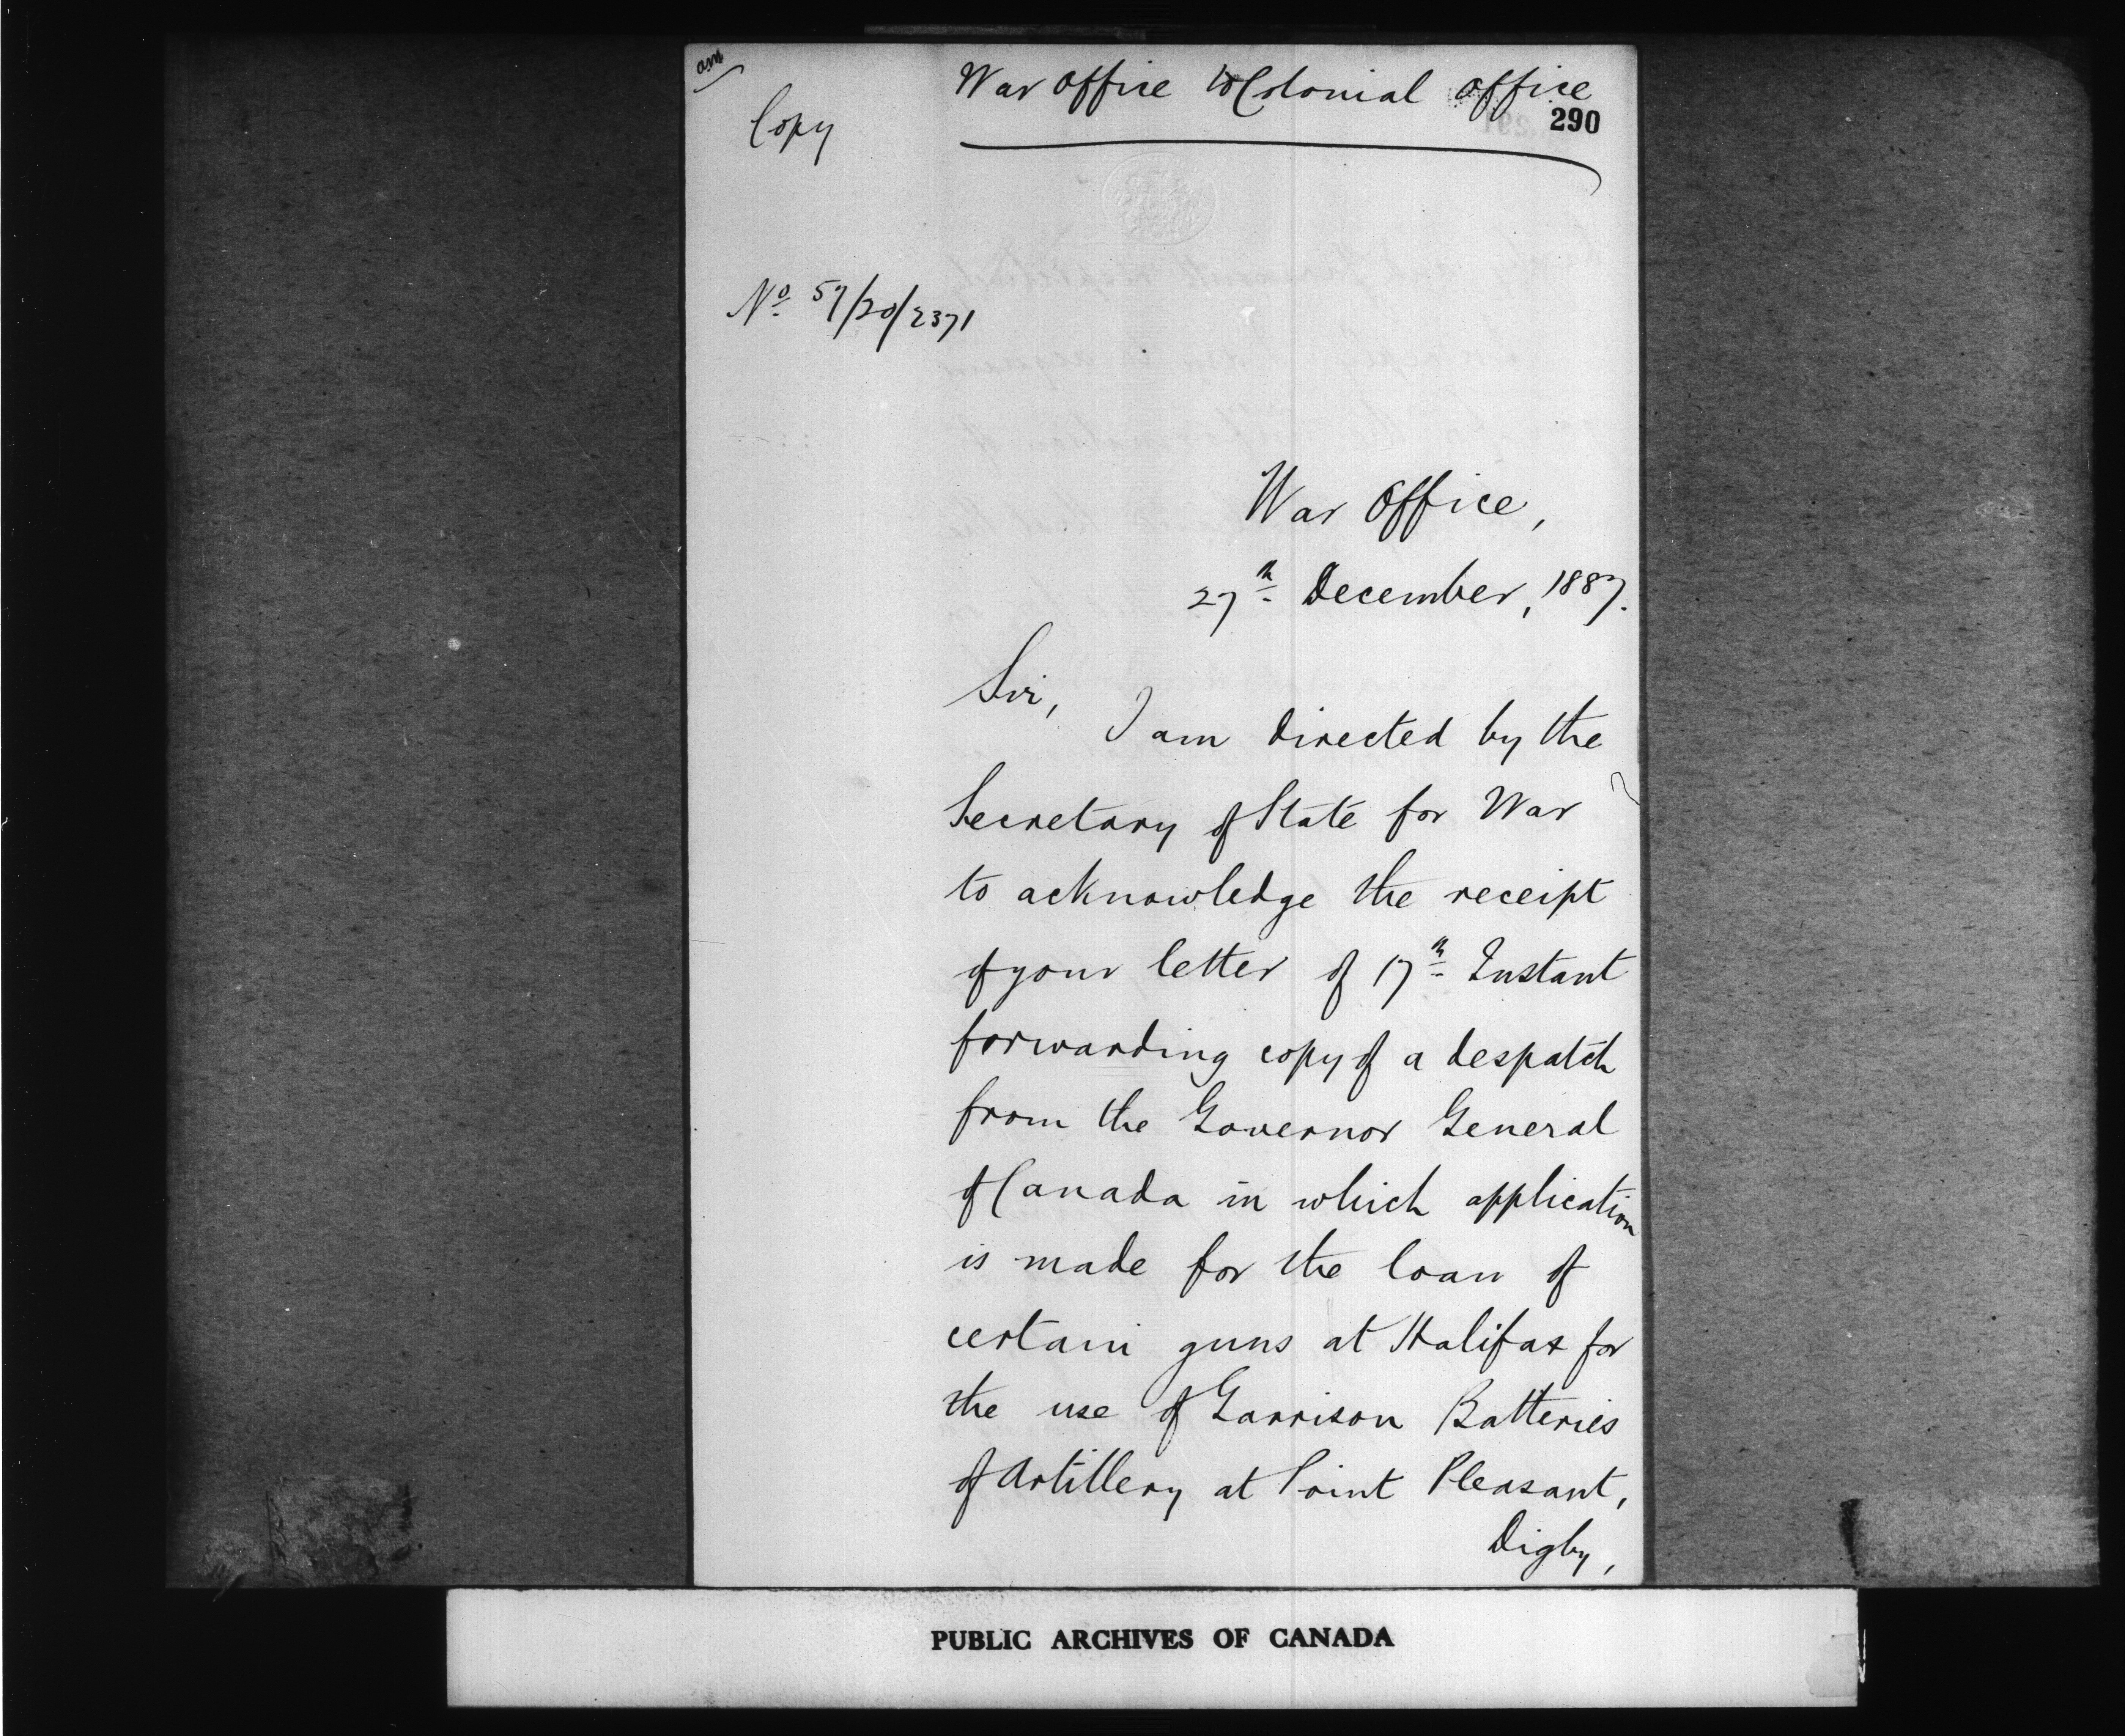 am
War Office to Colonial Office
Copy
290
No 57/20/2371
War Office,
27th December, 1887.
Sir,
I am directed by the
Secretary of State for War
to acknowledge the receipt
of your letter of 17th Instant
forwarding copy of a despatch
from the Governor General
of Canada in which application
is made for the loan of
certain guns at Halifax for
the use of Garrison Batteries
of Artillery at Point Pleasant,
Digby,
PUBLIC ARCHIVES OF CANADA